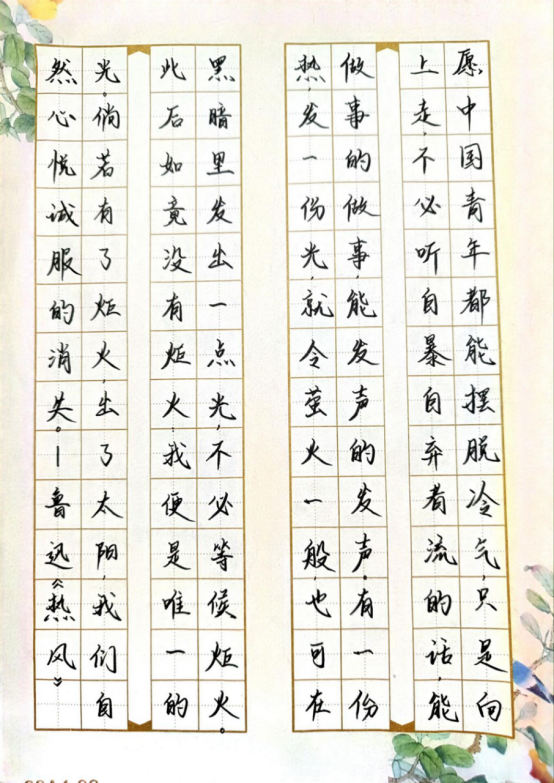 愿中国青年都能摆脱冷气,只是向
上走,不必听自暴自弃者流的话,能
做事的做事,能发声的发声。有一份
热,发一份光,就令萤火一般,也可在
黑暗里发出一点光,不必等候炬火。
此后如竟没有炬火:我便是唯一的
光。倘若有了炬火,出了太阳,我们自
然心悦诚服的消失。—鲁
迅《热风》